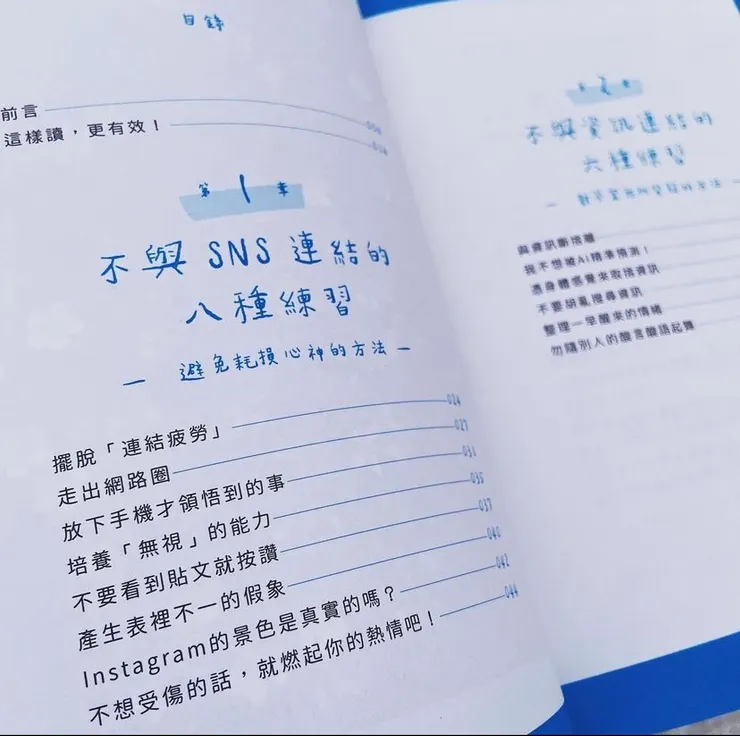 目錄
前言 006
這樣讀，更有效！ 014
第1章
不與 SNS 連結的
八種練習
— 避免耗損心神的方法 —
擺脫「連結疲勞」 024
走出網路圈 027
放下手機才領悟到的事 031
培養「無視」的能力 035
不要看到貼文就按讚 037
產生表裡不一的假象 040
Instagram的景色是真實的嗎？ 042
不想受傷的話，就燃起你的熱情吧！ 044
第2章
不與資訊連結的
六種練習
與資訊斷捨離
我不想被AI精準預測！
憑身體感覺來取捨資訊
不要胡亂搜尋資訊
整理一早醒來的情緒
勿隨別人的酸言酸語起舞